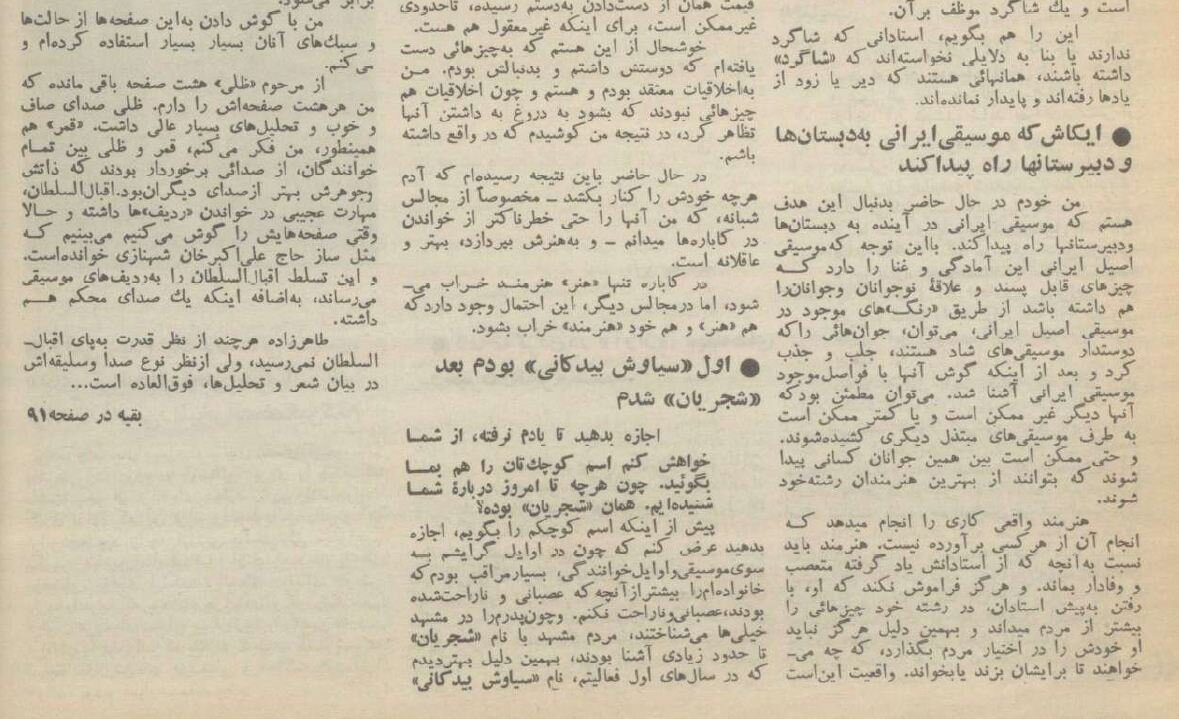 است و یك شاگرد موظف برآن.
این را هم بگویم، استادانی که شاگرد
ندارند یا بنا به دلایلی نخواسته‌اند که «شاگرد»
داشته باشند، همانهائی هستند که دیر یا زود از
یادها رفته‌اند و پایدار نمانده‌اند.
● ایکاش که موسیقی ایرانی به‌دبستان‌ها
و دبیرستانها راه پیداکند
من خودم در حال حاضر بدنبال این هدف
هستم که موسیقی ایرانی در آینده به دبستان‌ها
ودبیرستانها راه پیداکند. بااین توجه که‌موسیقی
اصیل ایرانی این آمادگی و غنا را دارد کــه
چیزهای قابل پسند و علاقهٔ نوجوانان وجوانان‌را
هم داشته باشد از طریق «رنگ»های موجود در
موسیقی اصیل ایرانی، می‌توان، جوان‌هائی راکه
دوستدار موسیقی‌های شاد هستند، جلب و جذب
کرد و بعد از اینکه گوش آنها با فواصل‌موجود
موسیقی ایرانی آشنا شد. می‌توان مطمئن بودکه
آنها دیگر غیر ممکن است و یا کمتر ممکن است
به طرف موسیقی‌های مبتذل دیگری کشیده‌شوند.
و حتی ممکن است بین همین جوانان کسانی پیدا
شوند که بتوانند از بهترین هنرمندان رشته‌خود
شوند.
هنرمند واقعی کاری را انجام میدهد کــه
انجام آن از هرکسی برآورده نیست. هنرمند باید
نسبت به‌آنچه که از استادانش یاد گرفته متعصب
و وفادار بماند. و هرگز فراموش نکند که او، با
رفتن به‌پیش استادان، در رشته خود چیزهائی را
بیشتر از مردم میداند و بهمین دلیل هرگز نباید
او خودش را در اختیار مردم بگذارد، که چه می‌ـ
خواهند تا برایشان بزند یابخواند. واقعیت این‌است
قیمت همان از دست‌دادن به‌دستم رسیده، تاحدودی
غیرممکن است، برای اینکه غیرمعقول هم هست.
خوشحال از این هستم که به‌چیزهائی دست
یافته‌ام که دوستش داشتم و بدنبالش بودم. مــن
به‌اخلاقیات معتقد بودم و هستم و چون اخلاقیات هم
چیزهائی نبودند که بشود به دروغ به داشتن آنها
تظاهر کرد، در نتیجه من کوشیدم که در واقع داشته
باشم.
در حال حاضر باین نتیجه رسیده‌ام که آدم
هرچه خودش را کنار بکشد ـ مخصوصاً از مجالس
شبانه، که من آنها را حتی خطرناکتر از خواندن
در کاباره‌ها میدانم ـ و به‌هنرش بپردازد، بهتر و
عاقلانه است.
در کاباره تنها «هنر» هنرمنــد خــراب می‌ـ
شود، اما درمجالس دیگر، این احتمال وجود داردکه
هم «هنر» و هم خود «هنرمند» خراب بشود.
● اول «سیاوش بیدکانی» بودم بعد
«شجریان» شدم
اجازه بدهید تا یادم نرفته، از شمــا
خواهش کنم اسم کوچك‌تان را هم بمــا
بگوئید. چون هرچه تا امروز دربارهٔ شمــا
شنیده‌ایم. همان «شجریان» بوده؟
پیش از اینکه اسم کوچکم را بگویم، اجازه
بدهید عرض کنم که چون در اوایل گرایشم بــه
سوی‌موسیقی‌واوایل‌خوانندگی، بسیارمراقب بودم‌که
خانواده‌ام‌را بیشترازآنچه‌که عصبانی و ناراحت‌شده
بودند،عصبانی‌وناراحت نکنم. وچون‌پدرم‌را در مشهد
خیلی‌ها می‌شناختند، مردم مشهد با نام «شجریان»
تا حدود زیادی آشنا بودند، بهمین دلیل بهتردیدم
که در سال‌های اول فعالیتم، نام «سیاوش بیدکانی»
من با گوش دادن به‌این صفحه‌ها از حالت‌ها
و سبك‌های آنان بسیار بسیار استفاده کرده‌ام و
می‌کنم.
از مرحوم «ظلی» هشت صفحه باقی مانده که
من هرهشت صفحه‌اش را دارم. ظلی صدای صاف
و خوب و تحلیل‌های بسیار عالی داشت. «قمر» هم
همینطور، من فکر می‌کنم، قمر و ظلی بین تمــام
خوانندگان، از صدائی برخوردار بودند که ذاتش
وجوهرش بهتر ازصدای دیگران‌بود.اقبال‌السلطان،
مهارت عجیبی در خواندن «ردیف»ها داشته و حــالا
وقتی صفحه‌هایش را گوش می‌کنیم می‌بینیم کــه
مثل ساز حاج علی‌اکبرخان شهنازی خوانده‌است.
و این تسلط اقبال‌السلطان را به‌ردیف‌های موسیقی
می‌رساند، به‌اضافه اینکه یك صدای محکم هــم
داشته.
طاهرزاده هرچند از نظر قدرت به‌پای اقبال‌ـ
السلطان نمی‌رسید، ولی ازنظر نوع صدا وسلیقه‌اش
در بیان شعر و تحلیل‌ها، فوق‌العاده است...
بقیه در صفحه۹۱